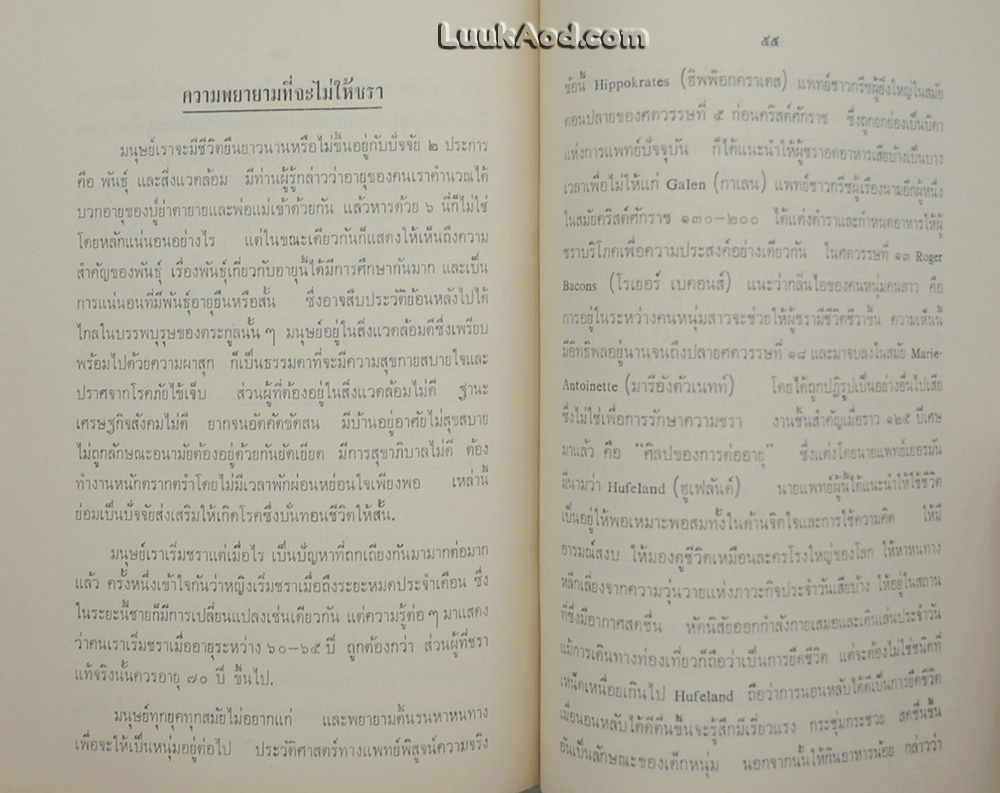 LuukAod.com
ความพยายามที่จะไม่ให้ชรา
มนุษย์เราจะมีชีวิตยืนยาวนานหรือไม่ขึ้นอยู่กับปัจจัย ๒ ประการ
คือ พันธุ์ และสิ่งแวดล้อม มีท่านผู้รู้กล่าวว่าอายุของคนเราคำนวณได้
บวกอายุของปู่ย่าตายายและพ่อแม่เข้าด้วยกัน แล้วหารด้วย ๖ นี่ก็ไม่ใช่
โดยหลักแน่นอนอย่างไร แต่ในขณะเดียวกันก็แสดงให้เห็นถึงความ
สำคัญของพันธุ์ เรื่องพันธุ์เกี่ยวกับอายุนี้ได้มีการศึกษากันมาก และเป็น
การแน่นอนที่มีพันธุ์อายุยืนหรือสั้น ซึ่งอาจสืบประวัติย้อนหลังไปได้
ไกลในบรรพบุรุษของตระกูลนั้น ๆ มนุษย์อยู่ในสิ่งแวดล้อมดีซึ่งเพรียบ
พร้อมไปด้วยความผาสุก ก็เป็นธรรมดาที่จะมีความสุขกายสบายใจและ
ปราศจากโรคภัยไข้เจ็บ ส่วนผู้ที่ต้องอยู่ในสิ่งแวดล้อมไม่ดี ฐานะ
เศรษฐกิจสังคมไม่ดี ยากจนอัตคัดขัดสน มีบ้านอยู่อาศัยไม่สุขสบาย
ไม่ถูกลักษณะอนามัยต้องอยู่ด้วยกันยัดเยียด มีการสุขาภิบาลไม่ดี ต้อง
ทำงานหนักตรากตรำโดยไม่มีเวลาพักผ่อนหย่อนใจเพียงพอ เหล่านี้
ย่อมเป็นปัจจัยส่งเสริมให้เกิดโรคซึ่งบั่นทอนชีวิตให้สั้น.
มนุษย์เราเริ่มชราแต่เมื่อไร เป็นปัญหาที่ถกเถียงกันมามากต่อมาก
แล้ว ครั้งหนึ่งเข้าใจกันว่าหญิงเริ่มชราเมื่อถึงระยะหมดประจำเดือน ซึ่ง
ในระยะนี้ชายก็มีการเปลี่ยนแปลงเช่นเดียวกัน แต่ความรู้ต่อ ๆ มาแสดง
ว่าคนเราเริ่มชราเมื่ออายุระหว่าง ๖๐—๖๕ ปี ถูกต้องกว่า ส่วนผู้ที่ชรา
แท้จริงนั้นควรอายุ ๗๐ ปี ขึ้นไป.
มนุษย์ทุกยุคทุกสมัยไม่อยากแก่ และพยายามดิ้นรนหาหนทาง
เพื่อจะให้เป็นหนุ่มอยู่ต่อไป ประวัติศาสตร์ทางแพทย์พิสูจน์ความจริง
๕๕
ข้อนี้ Hippokrates (ฮิพพ๊อกคราเตส) แพทย์ชาวกรีซผู้ยิ่งใหญ่ในสมัย
ตอนปลายของศตวรรษที่ ๕ ก่อนคริสต์ศักราช ซึ่งถูกยกย่องเป็นบิดา
แห่งการแพทย์ปัจจุบัน ก็ได้แนะนำให้ผู้ชราอดอาหารเสียบ้างเป็นบาง
เวลาเพื่อไม่ให้แก่ Galen (กาเลน) แพทย์ชาวกรีซผู้เรืองนามอีกผู้หนึ่ง
ในสมัยคริสต์ศักราช ๑๓๐—๒๐๐ ได้แต่งตำราและกำหนดอาหารให้ผู้
ชราบริโภคเพื่อความประสงค์อย่างเดียวกัน ในศตวรรษที่ ๑๓ Roger
Bacons (โรเยอร์ เบคอนส์) แนะว่ากลิ่นไอของคนหนุ่มคนสาว คือ
การอยู่ในระหว่างคนหนุ่มสาวจะช่วยให้ผู้ชรามีชีวิตชีวาขึ้น ความเห็นนี้
มีอิทธิพลอยู่นานจนถึงปลายศตวรรษที่ ๑๘ และมาจบลงในสมัย Marie-
Antoinette (มารีอังตัวเนทท์) โดยได้ถูกปฏิรูปเป็นอย่างอื่นไปเสีย
ซึ่งไม่ใช่เพื่อการรักษาความชรา งานชิ้นสำคัญเมื่อราว ๑๒๕ ปีเศษ
มาแล้ว คือ “ศิลปของการต่ออายุ” ซึ่งแต่งโดยนายแพทย์เยอรมัน
มีนามว่า Hufeland (ฮูเฟลันด์) นายแพทย์ผู้นี้ได้แนะนำให้ใช้ชีวิต
เป็นอยู่ให้พอเหมาะพอสมทั้งในด้านจิตใจและการใช้ความคิด ให้มี
อารมณ์สงบ ให้มองดูชีวิตเหมือนละครโรงใหญ่ของโลก ให้หาหนทาง
หลีกเลี่ยงจากความวุ่นวายแห่งภาวะกิจประจำวันเสียบ้าง ให้อยู่ในสถาน
ที่ซึ่งมีอากาศสดชื่น หัดนิสัยออกกำลังกายเสมอและเดินเล่นประจำวัน
แม้การเดินทางท่องเที่ยวก็ถือว่าเป็นการยืดชีวิต แต่จะต้องไม่ใช่ชนิดที่
เหน็ดเหนื่อยเกินไป Hufeland ถือว่าการนอนหลับได้ดีเป็นการยืดชีวิต
เมื่อนอนหลับได้ดีตื่นขึ้นจะรู้สึกมีเรี่ยวแรง กระชุ่มกระชวย สดชื่นขึ้น
อันเป็นลักษณะของเด็กหนุ่ม นอกจากนั้นให้กินอาหารน้อย กล่าวว่า